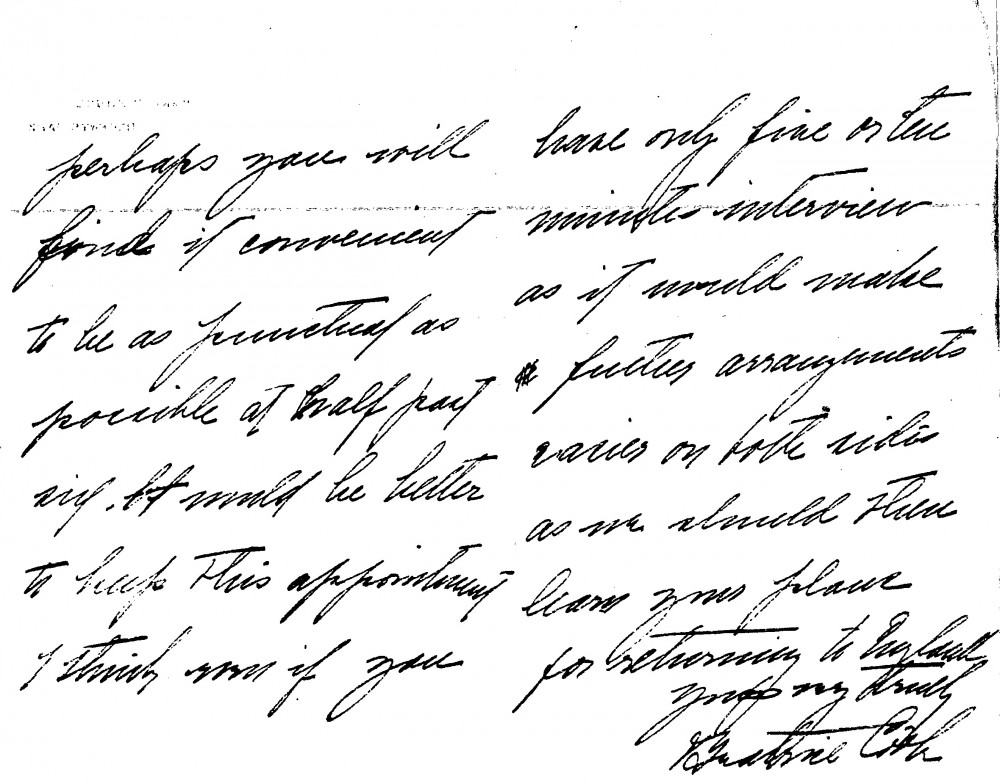 perhaps you will
find it convenient
to be as punctual as
possible at half past
six. It would be better
to keep this appointment
I think even if you
have only five or ten
minutes interview
as it would make
further arrangements
easier on both sides
as we should then
learn your plans
for returning to England
yours very truly
Beatrice